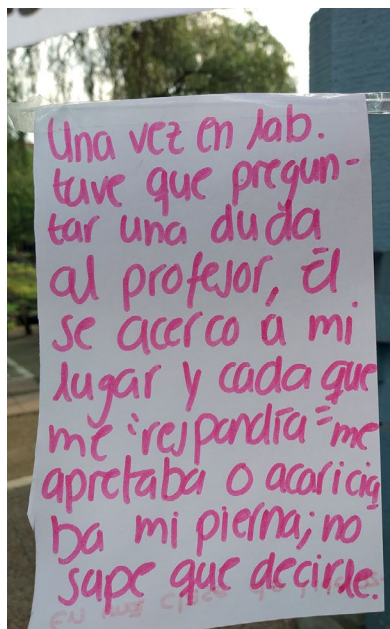 Una vez en lab.
tuve que pregun-
tar una duda
al profesor, Él
se acerco a mi
lugar y cada que
me "respondía" me
apretaba o acaricia
ba mi pierna; no
supe que decirle.